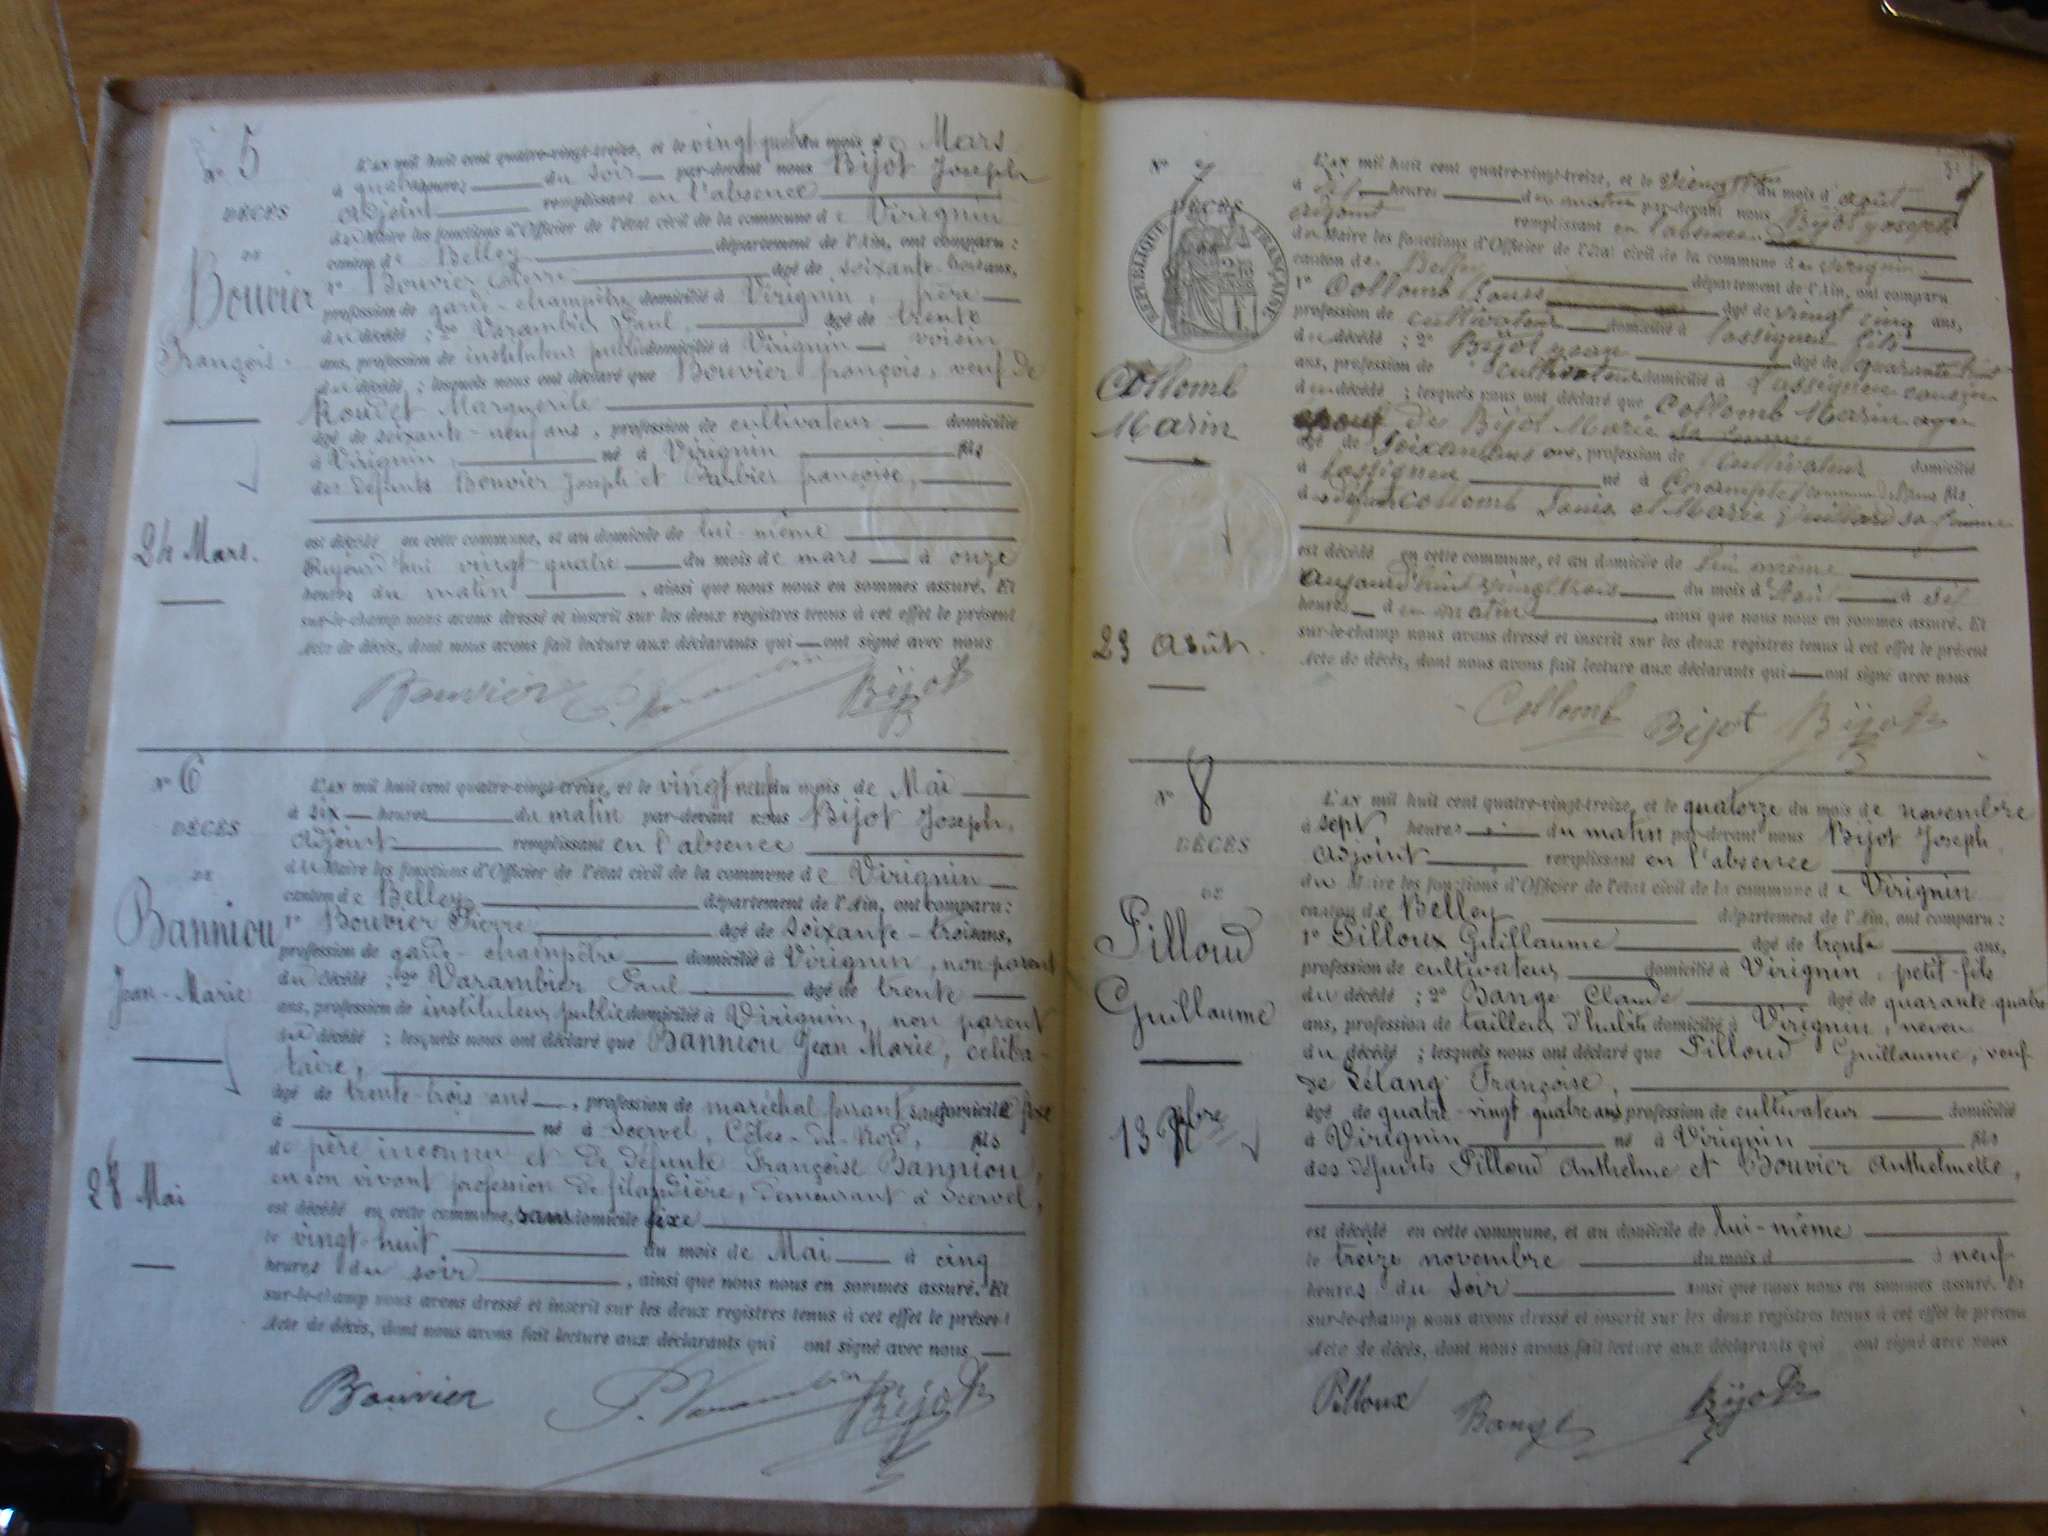 N° 5
DÉCÈS
DE
Bouvier
François.
24 Mars.
L'an mil huit cent quatre-vingt-treize, et le vingt quatre du mois de Mars
à quatre heures du soir par-devant nous Bijot Joseph
adjoint remplissant en l'absence
du Maire les fonctions d'Officier de l'état civil de la commune de Virignin
canton de Belley département de l'Ain, ont comparu :
1° Bouvier Pierre âgé de soixante-trois ans,
profession de garde-champêtre domicilié à Virignin, frère
du décédé ; 2° Varambier Paul, âgé de trente
ans, profession de instituteur public domicilié à Virignin voisin
du décédé ; lesquels nous ont déclaré que Bouvier françois, veuf de
Roudet Marguerite
âgé de soixante-neuf ans, profession de cultivateur domicilié
à Virignin, né à Virignin fils
des défunts Bouvier Joseph et Barbier françoise,
est décédé en cette commune, et au domicile de lui-même
aujourd'hui vingt quatre du mois de mars à onze
heures du matin, ainsi que nous nous en sommes assuré. Et
sur-le-champ nous avons dressé et inscrit sur les deux registres tenus à cet effet le présent
Acte de décès, dont nous avons fait lecture aux déclarants qui ont signé avec nous
Bouvier Bijot
N° 6
DÉCÈS
DE
Banniou
Jean-Marie
28 Mai
L'an mil huit cent quatre-vingt-treize, et le vingt neuf du mois de Mai
à six heures du matin par-devant nous Bijot Joseph,
adjoint remplissant en l'absence
du Maire les fonctions d'Officier de l'état civil de la commune de Virignin
canton de Belley département de l'Ain, ont comparu :
1° Bouvier Pierre âgé de soixante-trois ans,
profession de garde-champêtre domicilié à Virignin, non parent
du décédé ; 2° Varambier Paul âgé de trente
ans, profession de instituteur public domicilié à Virignin, non parent
du décédé ; lesquels nous ont déclaré que Banniou Jean Marie, céliba-
taire,
âgé de trente-trois ans, profession de maréchal ferrant sans domicile fixe
à né à Scervel, Côtes-du-Nord, fils
de père inconnu et de défunte Françoise Banniou,
en son vivant profession de filandière, demeurant à Scervel,
est décédé en cette commune, sans domicile fixe
le vingt-huit du mois de Mai à cinq
heures du soir, ainsi que nous nous en sommes assuré. Et
sur-le-champ nous avons dressé et inscrit sur les deux registres tenus à cet effet le présent
Acte de décès, dont nous avons fait lecture aux déclarants qui ont signé avec nous
Bouvier P. Varambier Bijot
N° 7
DÉCÈS
RÉPUBLIQUE FRANÇAISE
Collomb
Marin
23 Août.
L'an mil huit cent quatre-vingt-treize, et le vingt trois du mois d'août
à heures du matin par-devant nous Bijot Joseph
adjoint remplissant en l'absence
du Maire les fonctions d'Officier de l'état civil de la commune de Virignin
canton de Belley département de l'Ain, ont comparu
1° Collomb Louis âgé de vingt cinq ans,
profession de cultivateur domicilié à Lassignieu fils
du décédé ; 2° Bijot Jean âgé de quarante
ans, profession de cultivateur domicilié à Lassignieu cousin
du décédé ; lesquels nous ont déclaré que Collomb Marin
époux de Bijot Marie
âgé de ans, profession de Cultivateur domicilié
à Lassignieu né à commune de fils
de Collomb Louis et Marie sa femme
est décédé en cette commune, et au domicile de lui même
aujourd'hui vingt trois du mois d'Août à
heures du matin, ainsi que nous nous en sommes assuré. Et
sur-le-champ nous avons dressé et inscrit sur les deux registres tenus à cet effet le présent
Acte de décès, dont nous avons fait lecture aux déclarants qui ont signé avec nous
Collomb Bijot Bijot
N° 8
DÉCÈS
DE
Pilloud
Guillaume
13 9bre
L'an mil huit cent quatre-vingt-treize, et le quatorze du mois de novembre
à sept heures du matin par-devant nous Bijot Joseph,
adjoint remplissant en l'absence
du Maire les fonctions d'Officier de l'état civil de la commune de Virignin
canton de Belley département de l'Ain, ont comparu :
1° Pilloux Guillaume âgé de trente ans,
profession de cultivateur domicilié à Virignin, petit-fils
du décédé ; 2° Bange Claude âgé de quarante quatre
ans, profession de tailleur d'habits domicilié à Virignin, neveu
du décédé ; lesquels nous ont déclaré que Pilloud Guillaume, veuf
de Létang Françoise,
âgé de quatre-vingt quatre ans profession de cultivateur domicilié
à Virignin né à Virignin fils
des défunts Pilloud Anthelme et Bouvier Anthelmette,
est décédé en cette commune, et au domicile de lui-même
le treize novembre du mois d à neuf
heures du soir ainsi que nous nous en sommes assuré. Et
sur-le-champ nous avons dressé et inscrit sur les deux registres tenus à cet effet le présent
Acte de décès, dont nous avons fait lecture aux déclarants qui ont signé avec nous
Pilloux Bange Bijot